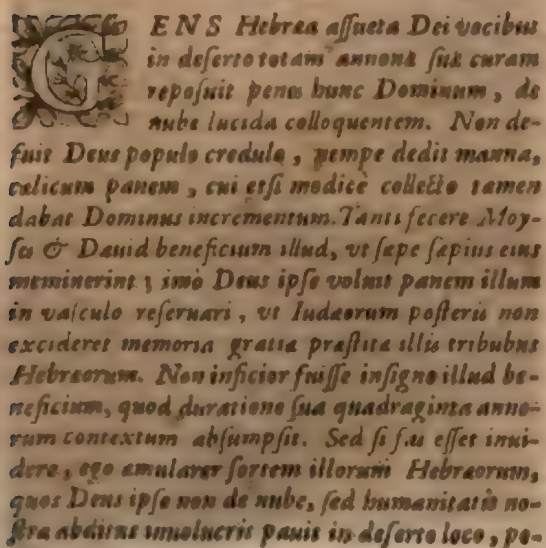 GENS Hebræa assueta Dei vocibus
in deserto totam annonæ suæ curam
reposuit penes hunc Dominum, de
nube lucida colloquentem. Non de-
fuit Deus populo credulo, nempe dedit manna,
cælicum panem, cui etsi modicè collecto tamen
dabat Dominus incrementum. Tanti fecere Moy-
ses & Dauid beneficium illud, vt sæpe sæpius eius
meminerint; imò Deus ipse voluit panem illum
in vasculo reseruari, vt Iudæorum posteris non
excideret memoria gratiæ præstitæ illis tribubus
Hebræorum. Non inficior fuisse insigne illud be-
neficium, quod duratione sua quadraginta anno-
rum contextum absumpsit. Sed si fas esset inui-
dere, ego æmularer sortem illorum Hebræorum,
quos Deus ipse non de nube, sed humanitatis no-
stræ abditus inuolucris pauit in deserto loco, po-